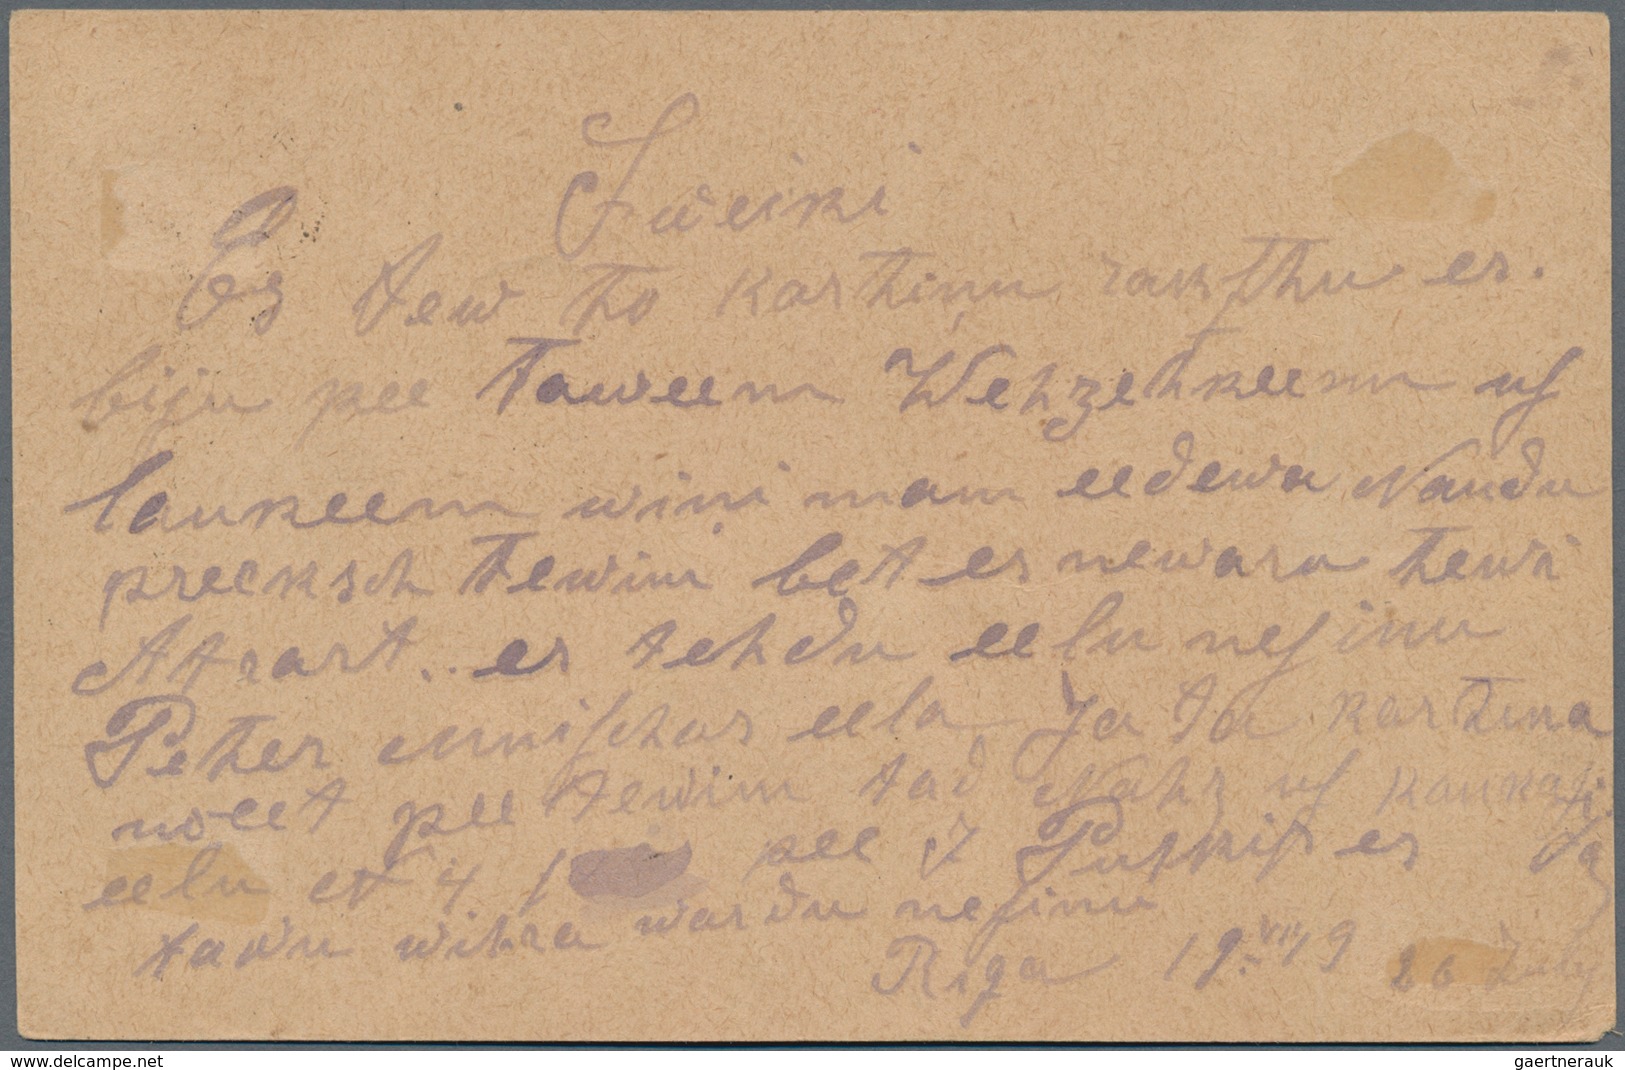 Sweiki
Es tew to kartinu raksthu es.
biju pee taweem Wehzehkeem uf
laukeem wini mam eedewa Naudu
preeksch tewim bet es newaru tewi
Attrast.. es tehdu eelu nesinu
Peter eela Ja ta kartina
noeet pee tewim tad Nahz uf
eelu et 4 pee J es Ja
tawu wihra wardu nesinu
Riga 19 VII 19 26 July
www.delcampe.net
gaertnerauk